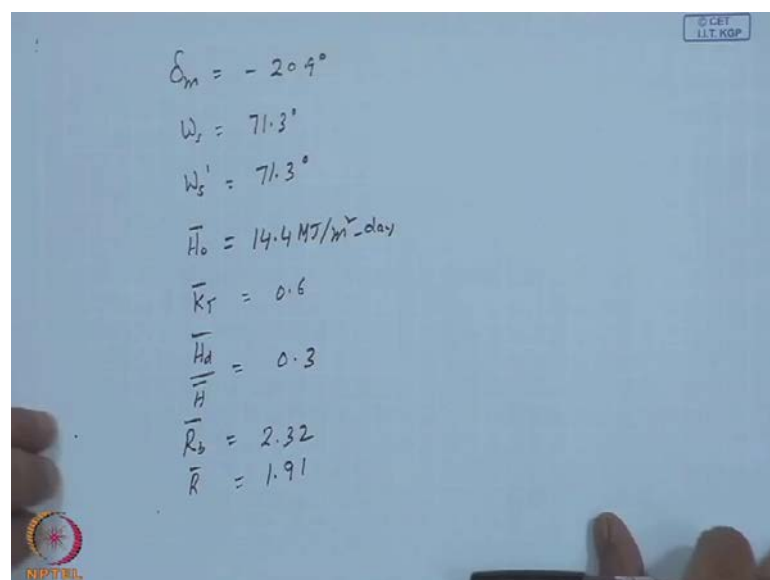 © CET
I.I.T. KGP
δm = - 20.9°
ωs = 71.3°
ωs' = 71.3°
H̄o = 14.4 MJ/m²-day
K̄T = 0.6
H̄d / H̄ = 0.3
R̄b = 2.32
R̄ = 1.91
NPTEL